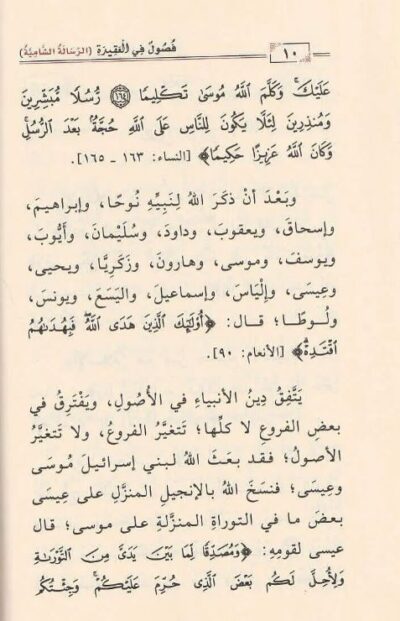 ١٠ فُصُولٌ فِي الْعَقِيدَةِ (الرِّسَالَةُ الشَّامِيَّةُ)
عَلَيْكَ وَكَلَّمَ اللَّهُ مُوسَى تَكْلِيمًا ١٦٤ رُّسُلًا مُّبَشِّرِينَ
وَمُنذِرِينَ لِئَلَّا يَكُونَ لِلنَّاسِ عَلَى اللَّهِ حُجَّةٌ بَعْدَ الرُّسُلِ
وَكَانَ اللَّهُ عَزِيزًا حَكِيمًا﴾ [النساء: ١٦٣ ـ ١٦٥].
وَبَعْدَ أَنْ ذَكَرَ اللهُ لِنَبِيِّهِ نُوحًا، وإبراهيمَ،
وإسحاقَ، ويعقوبَ، وداودَ، وسُلَيْمانَ، وأَيُّوبَ،
ويوسفَ، وموسى، وهارونَ، وزَكَرِيَّا، ويحيى،
وعِيسَى، وإِلْيَاسَ، وإسماعيلَ، واليَسَعَ، ويونسَ،
ولُوطًا؛ قالَ: ﴿أُوْلَٰئِكَ الَّذِينَ هَدَى اللَّهُ فَبِهُدَىٰهُمُ
اقْتَدِهْ﴾ [الأنعام: ٩٠].
يَتَّفِقُ دِينُ الأنبياءِ في الأُصُولِ، ويَفْتَرِقُ في
بعضِ الفروعِ لا كلِّها؛ تَتغيَّرُ الفروعُ، ولا تَتغيَّرُ
الأصولُ؛ فقد بعَثَ اللهُ لبني إسرائيلَ مُوسَى
وعِيسَى؛ فنسَخَ اللهُ بالإنجيلِ المنزَّلِ على عِيسَى
بعضَ ما في التوراةِ المنزَّلةِ على موسى؛ قال
عيسى لقومِهِ: ﴿وَمُصَدِّقًا لِّمَا بَيْنَ يَدَيَّ مِنَ التَّوْرَىٰةِ
وَلِأُحِلَّ لَكُم بَعْضَ الَّذِي حُرِّمَ عَلَيْكُمْ وَجِئْتُكُم